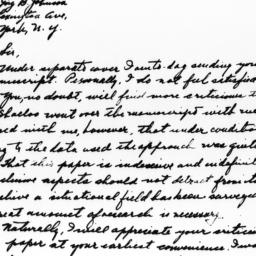 B. Johnson
Lexington Ave,
York, N. Y.
Sir,
Under separate cover I am to-day sending you
manuscript. Personally, I do not feel satisfied
you, no doubt, will find more criticisms
went over the manuscript with me
ed with me, however, that under conditio
to the data used the approach was quite
That this paper is indecisive and indefinit
clusive aspects should not detract from it
elieve a situational field has been surveye
reat amount of research is necessary.
Naturally, I will appreciate your criticis
paper at your earliest convenience. I wou